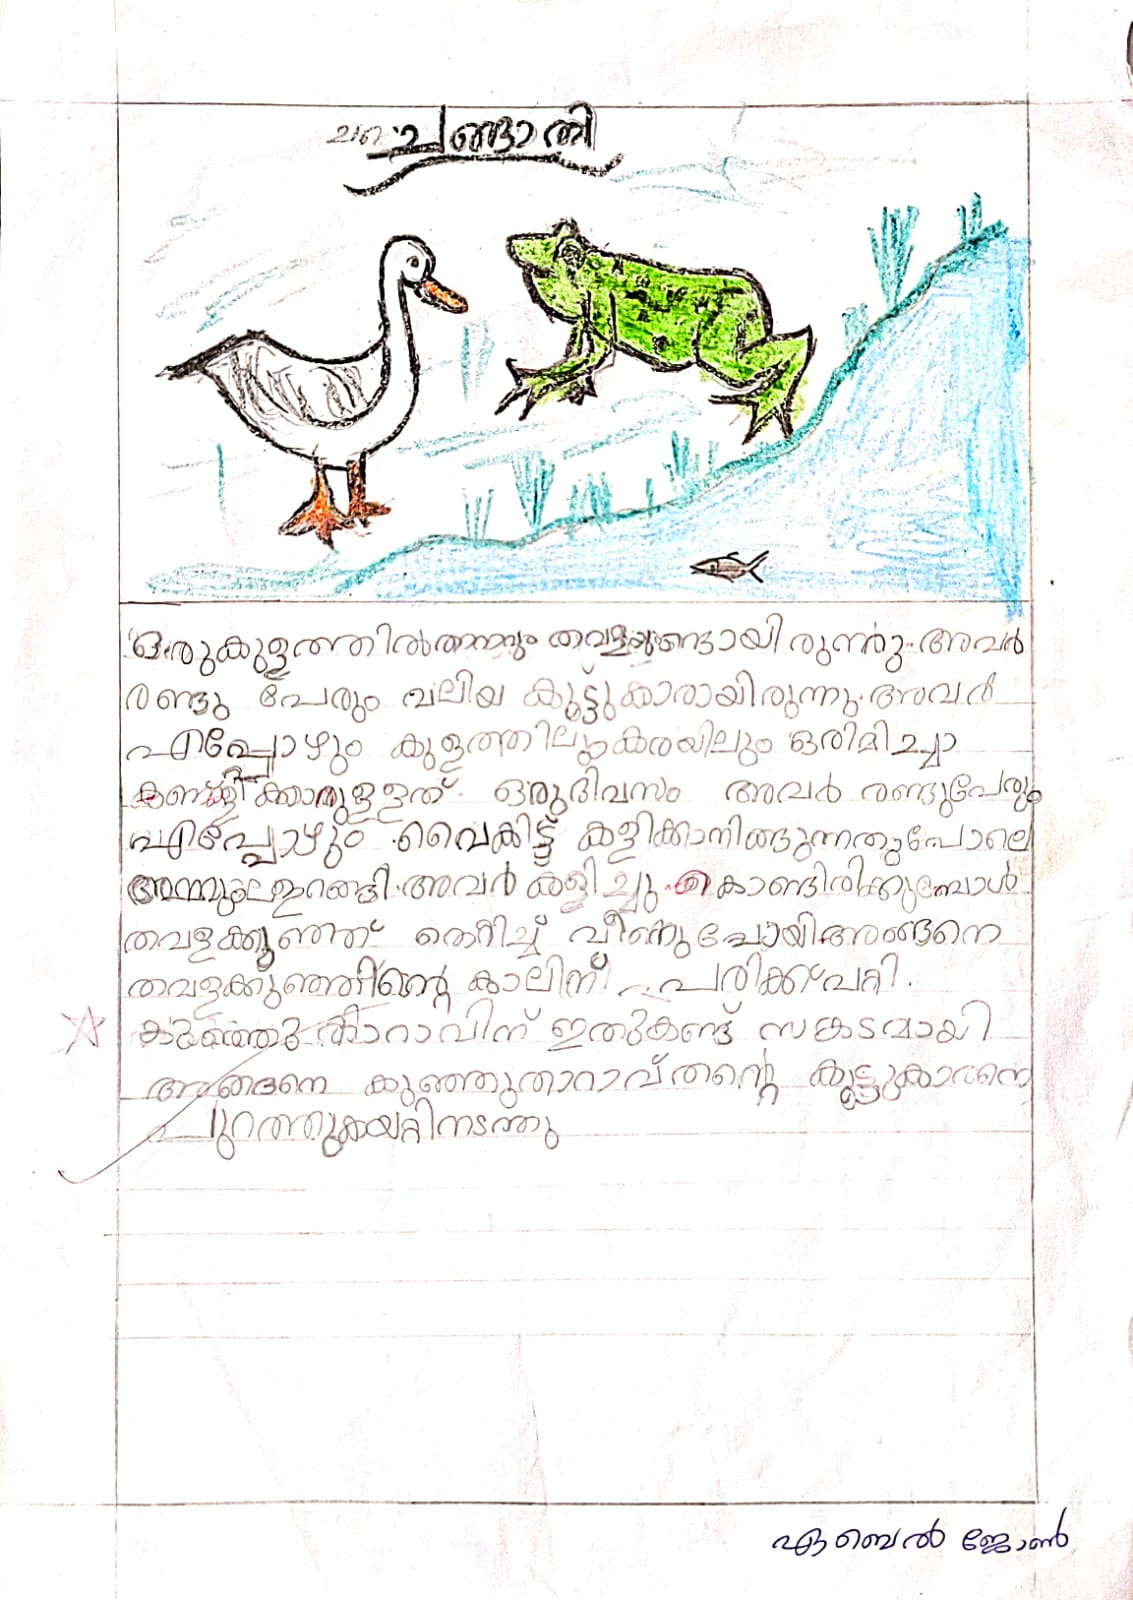 ചങ്ങാതി
ഒരുകുളത്തിൽ തവളയുണ്ടായിരുന്നു. അവർ
രണ്ടു പേരും വലിയ കൂട്ടുകാരായിരുന്നു. അവർ
എപ്പോഴും കുളത്തിലും കരയിലും ഒരിമിച്ചാ
ഒരുദിവസം അവർ രണ്ടുപേരും
എപ്പോഴും വൈകിട്ട് കളിക്കാനിങ്ങുന്നതുപോലെ
അവർ കളിച്ചു കൊണ്ടിരിക്കുമ്പോൾ
തവളക്കുഞ്ഞ് തെറിച്ച് വീണുപോയി അങ്ങനെ
തവളക്കുഞ്ഞിന്റെ കാലിന് പരിക്ക് പറ്റി.
താറാവിന് ഇതുകണ്ട് സങ്കടമായി
അങ്ങനെ കുഞ്ഞുതാറാവ് തന്റെ കൂട്ടുകാരനെ
പുറത്തുകയറ്റിനടന്നു
ഏബെൽ ജോൺ